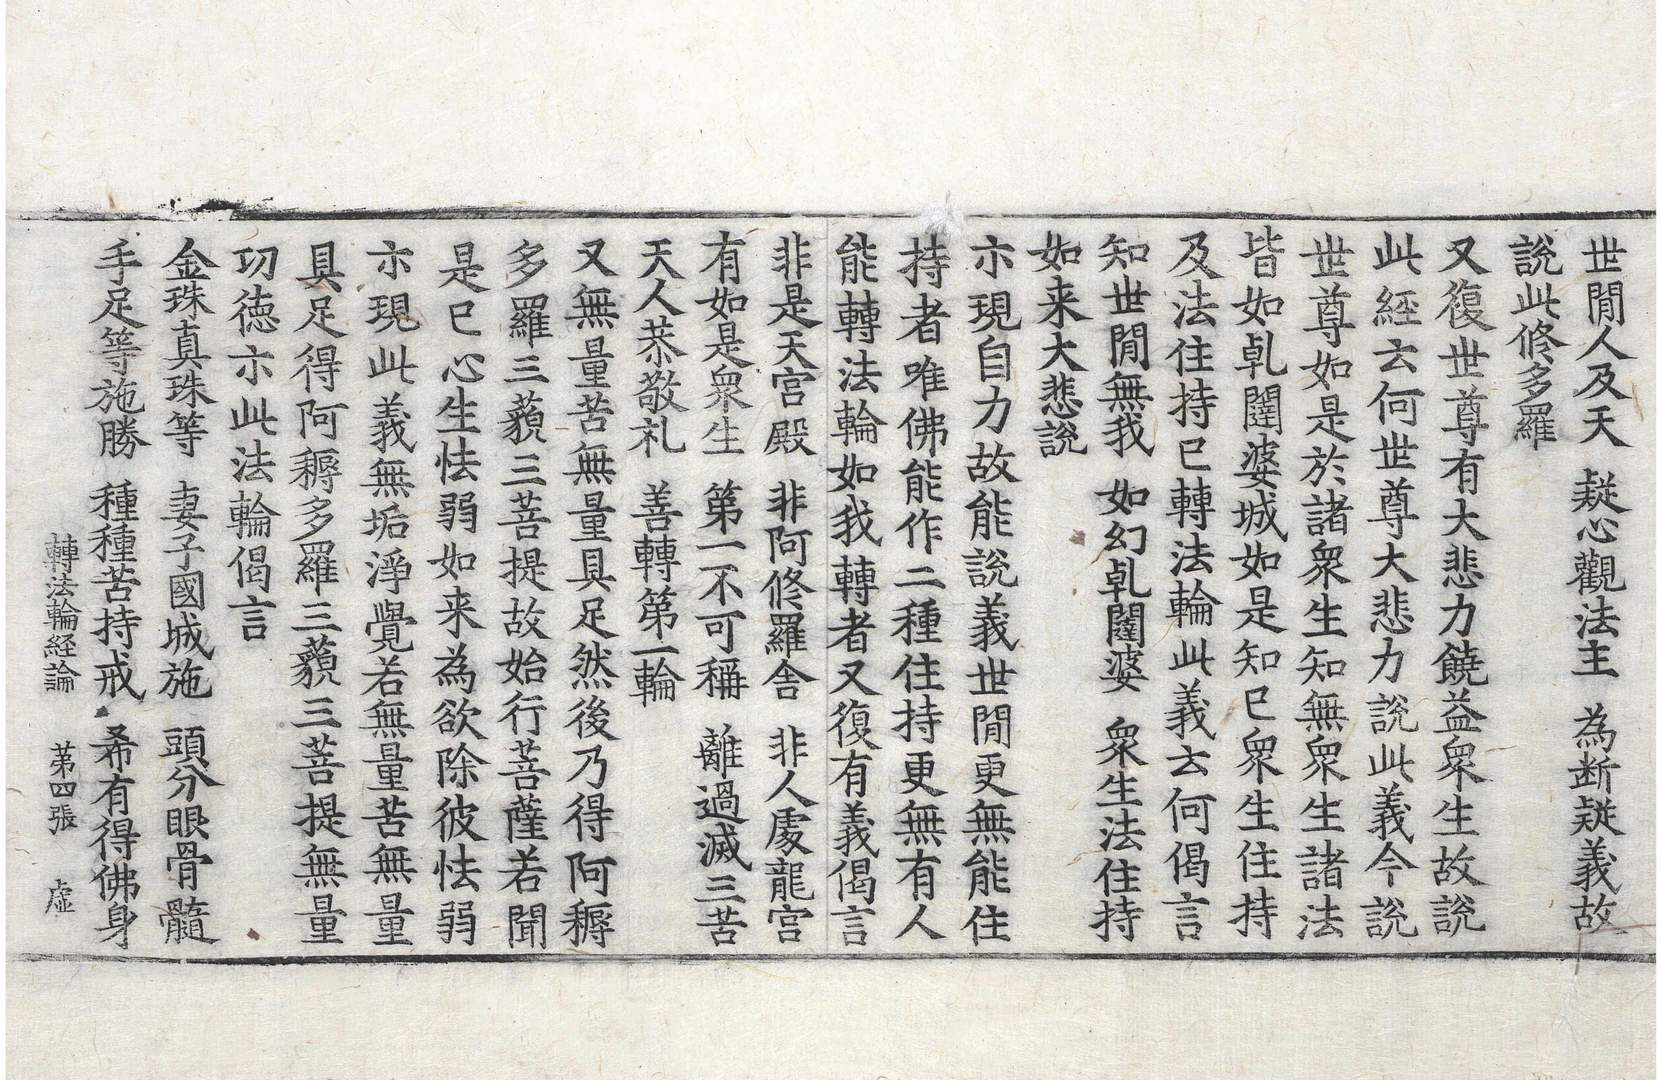 世閒人及天　疑心觀法主　為断疑義故
說此修多羅
又復世尊有大悲力饒益衆生故說
此經云何世尊大悲力說此義今說
世尊如是於諸衆生知無衆生諸法
皆如乹闥婆城如是知已衆生住持
及法住持已轉法輪此義云何偈言
知世閒無我　如幻乹闥婆　衆生法住持
如来大悲說
亦現自力故能說義世閒更無能住
持者唯佛能作二種住持更無有人
能轉法輪如我轉者又復有義偈言
非是天宮殿　非阿修羅舍　非人處龍宮
有如是衆生　第一不可稱　離過滅三苦
天人恭敬礼　善轉第一輪
又無量苦無量具足然後乃得阿耨
多羅三藐三菩提故始行菩薩若聞
是已心生怯弱如来為欲除彼怯弱
亦現此義無垢淨覺若無量苦無量
具足得阿耨多羅三藐三菩提無量
功德亦此法輪偈言
金珠真珠等　妻子國城施　頭分眼骨髓
手足等施勝　種種苦持戒　希有得佛身
轉法輪経論　苐四張　虛